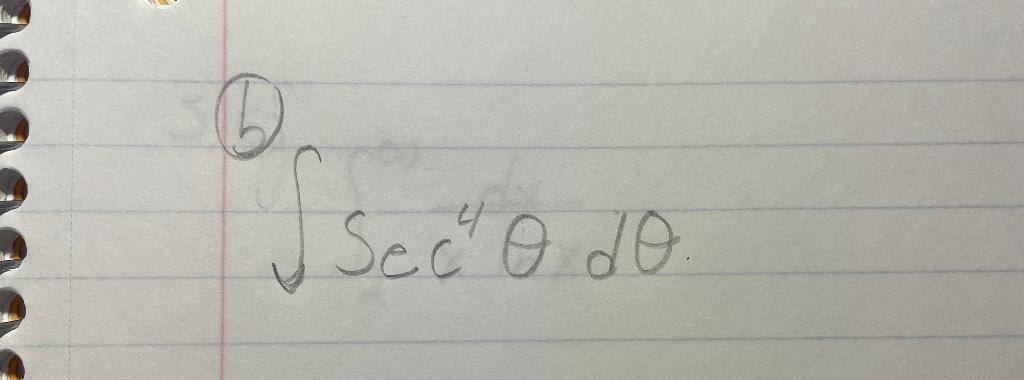 b
∫ Sec⁴ θ dθ.